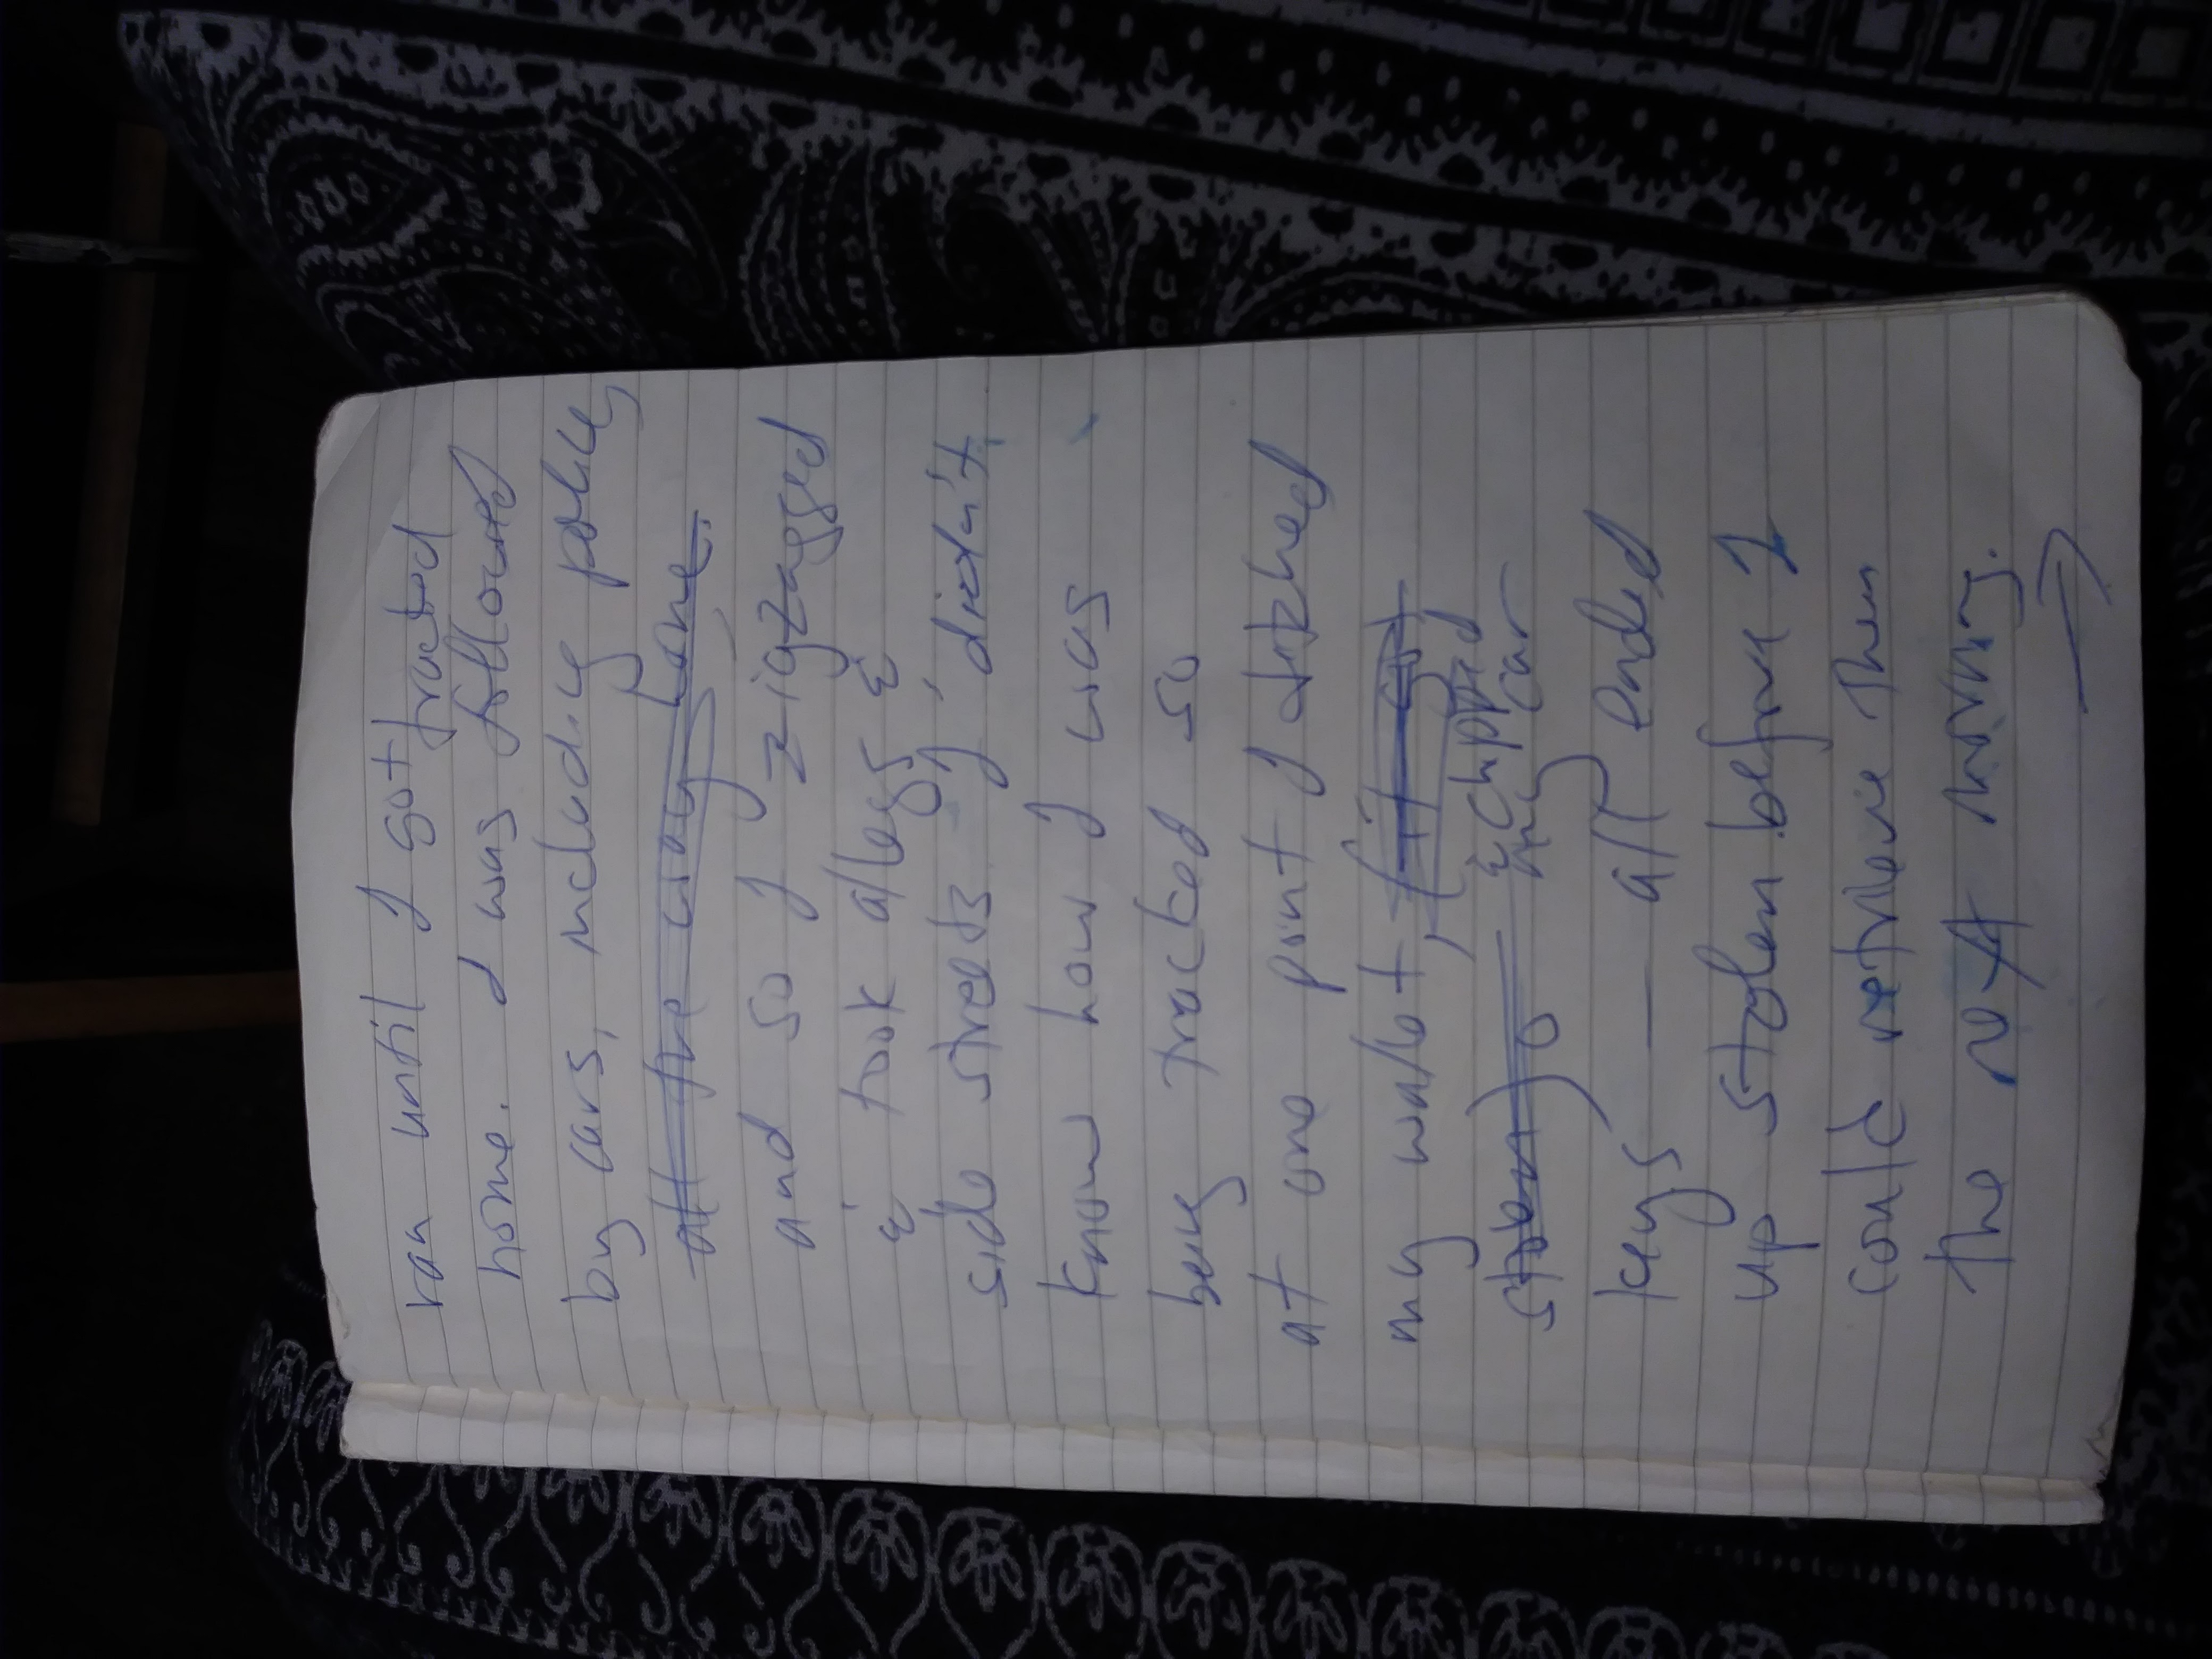 ran until I got
tracked
home. I was followed
by cars, including police,
all the way home.
and so I zigzagged
& took alleys &
side streets. I didn't
know how I was
being tracked so
at one point I ditched
my wallet, fit
stolen) & chipped
my car
keys — all ended
up stolen before I
could retrieve them
the next morning.
→